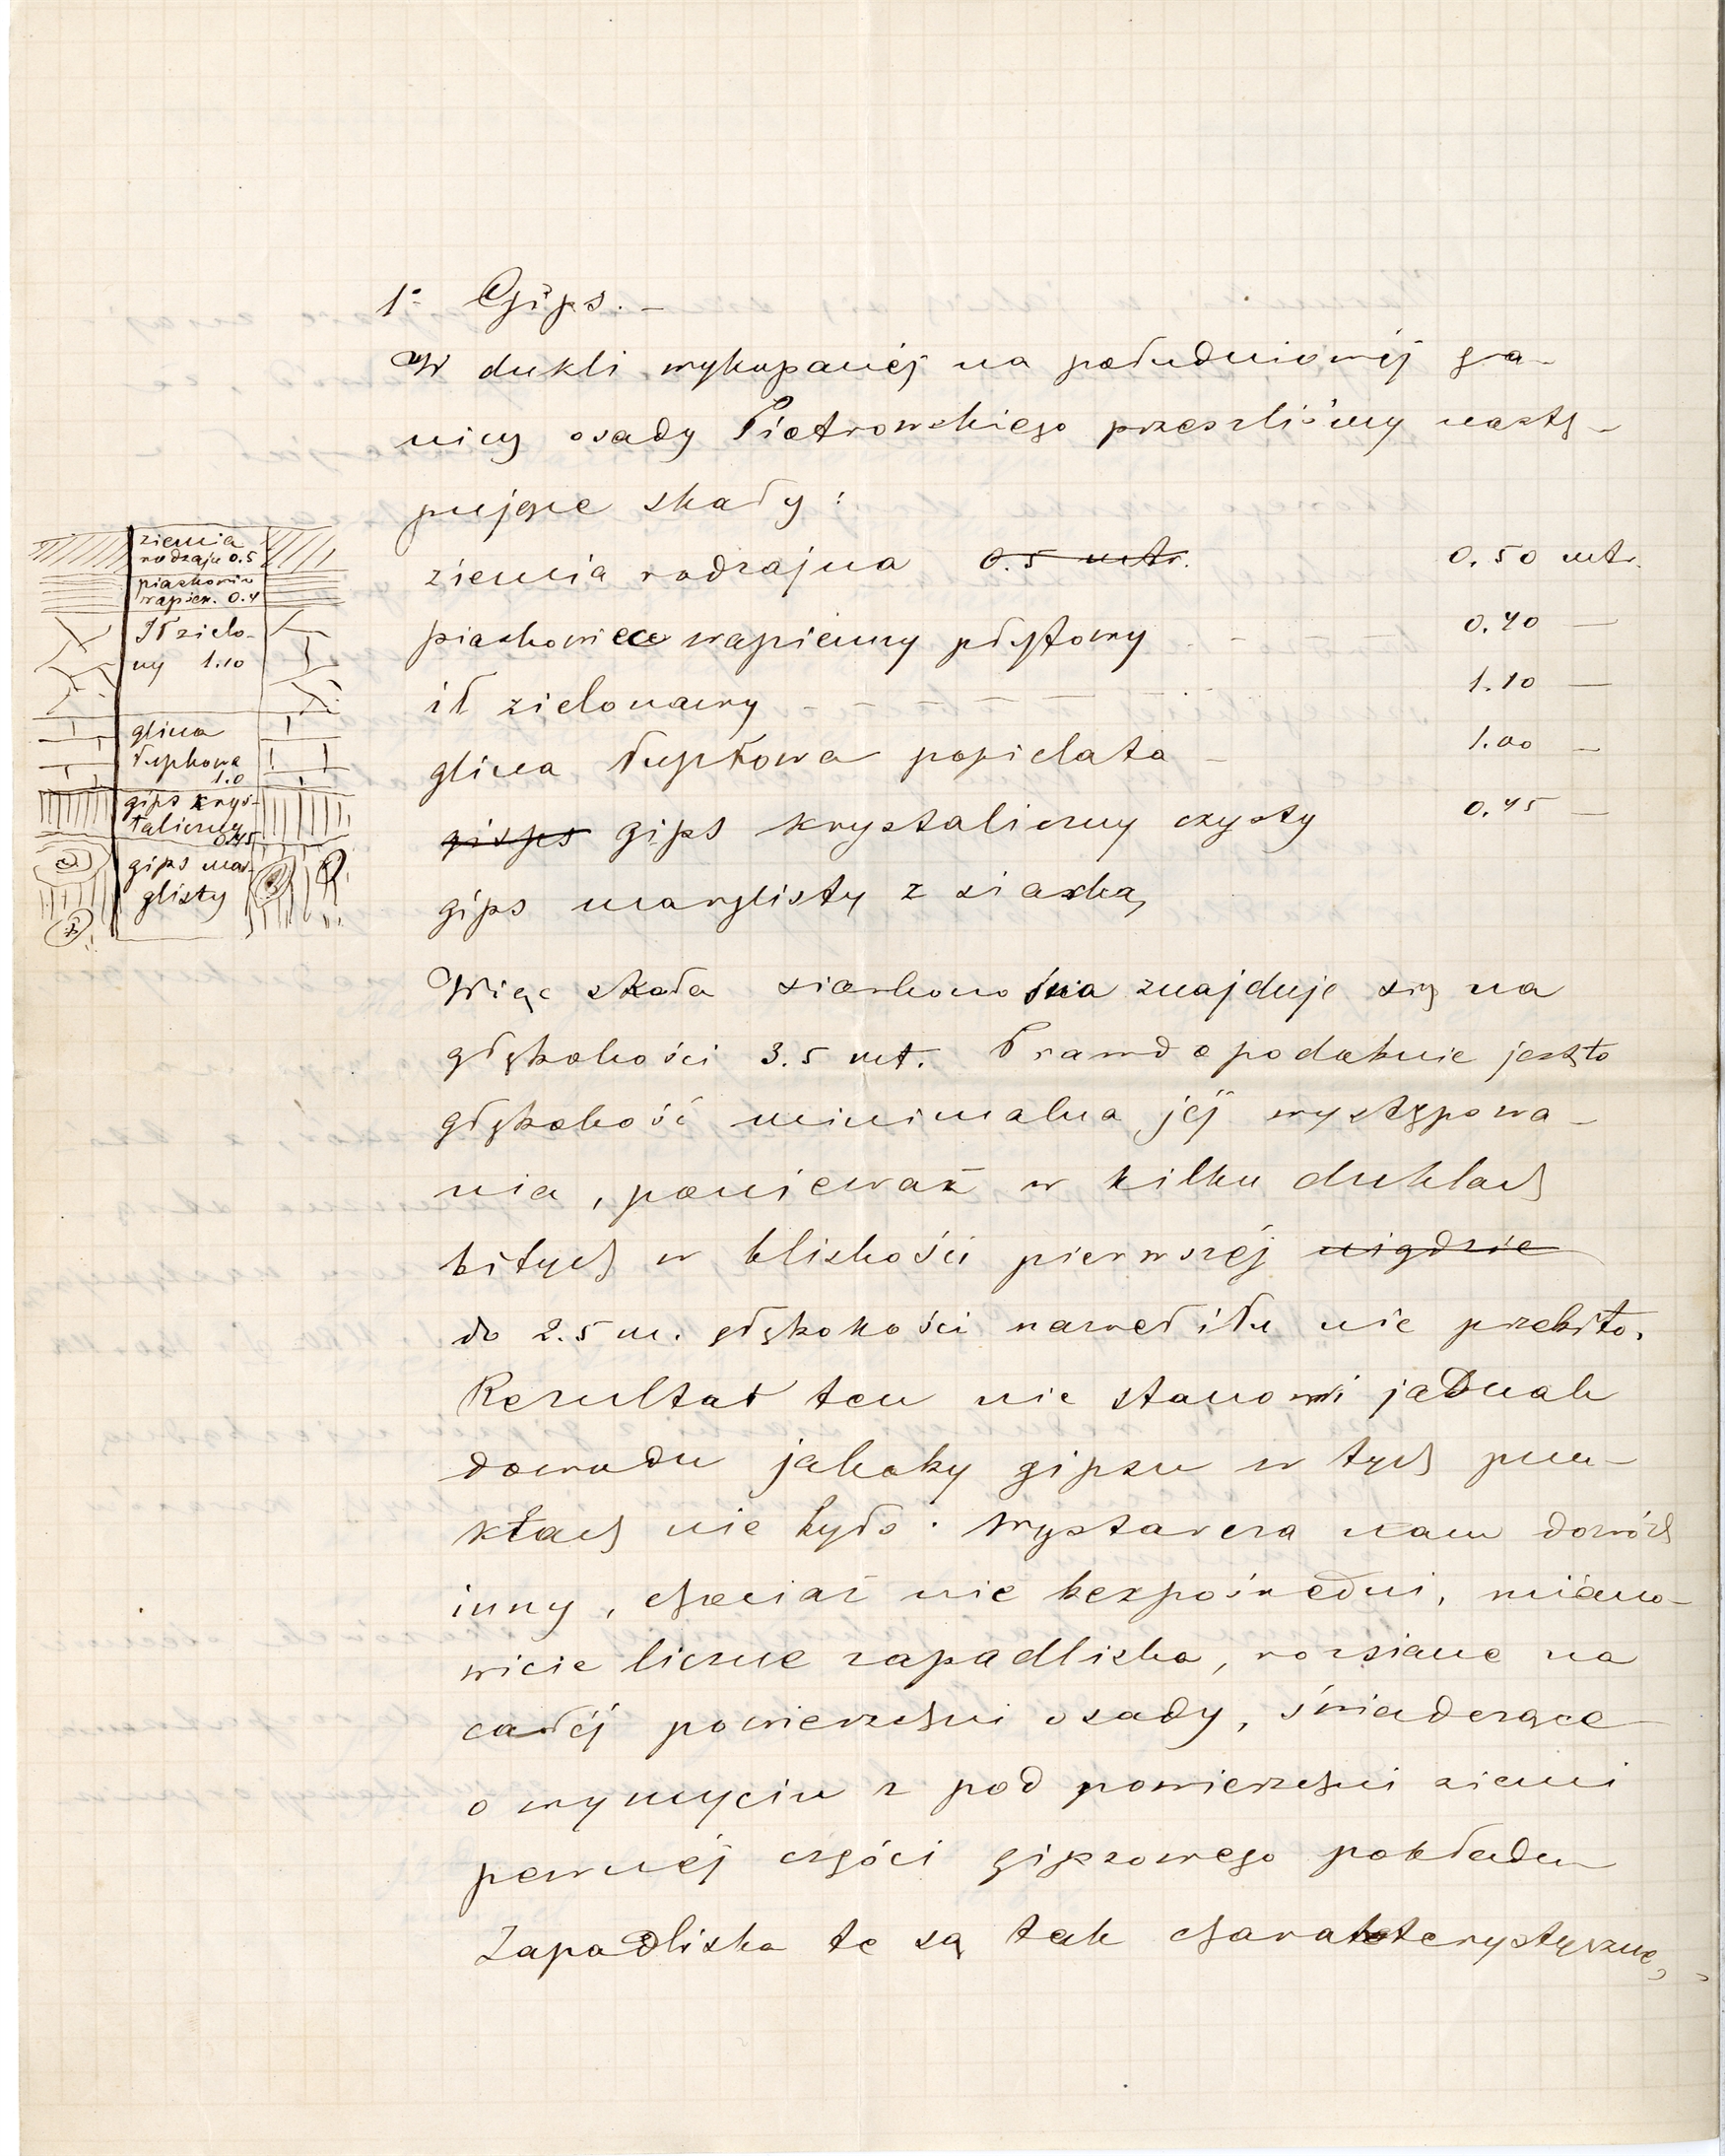 1º Gips. –
W dukli wykopanéj na południowéj gra-
nicy osady Piotrowskiego przeszliśmy nastę-
pujące skały :
ziemia rodzajna 0.5 mtr. 0.50 mtr.
piaskowiec wapienny płytowy - - 0.40 —
ił zielonawy - - - - - 1.10 —
glina łupkowa popielata - 1.00 —
gisps gips krystaliczny czysty 0.45 —
gips marglisty z siarką
ziemia
rodzaju 0.5
piaskowiec
wapien. 0.4
Ił zielo-
ny 1.10
glina
łupkowa
1.0
gips krys-
taliczny
0.45
gips mar-
glisty
Więc skała siarkonośna znajduje się na
głębokości 3.5 mt. Prawdopodobnie jest to
głębokość minimalna jéj występowa-
nia, ponieważ w kilku duklach
bitych w blizkości pierwszéj nigdzie
do 2.5 m. głębokości nawet iłu nie przebito.
Rezultat ten nie stanowi jednak
dowodu jakoby gipsu w tych pun-
ktach nie było. Wystarcza nam dowód
inny, chociaż nie bezpośredni, miano-
wicie liczne zapadliska, rozsiane na
całéj powierzchni osady, świadczące
o wymyciu z pod powierzchni ziemi
pewnéj części gipsowego pokładu
Zapadliska te są tak charakterystyczne,